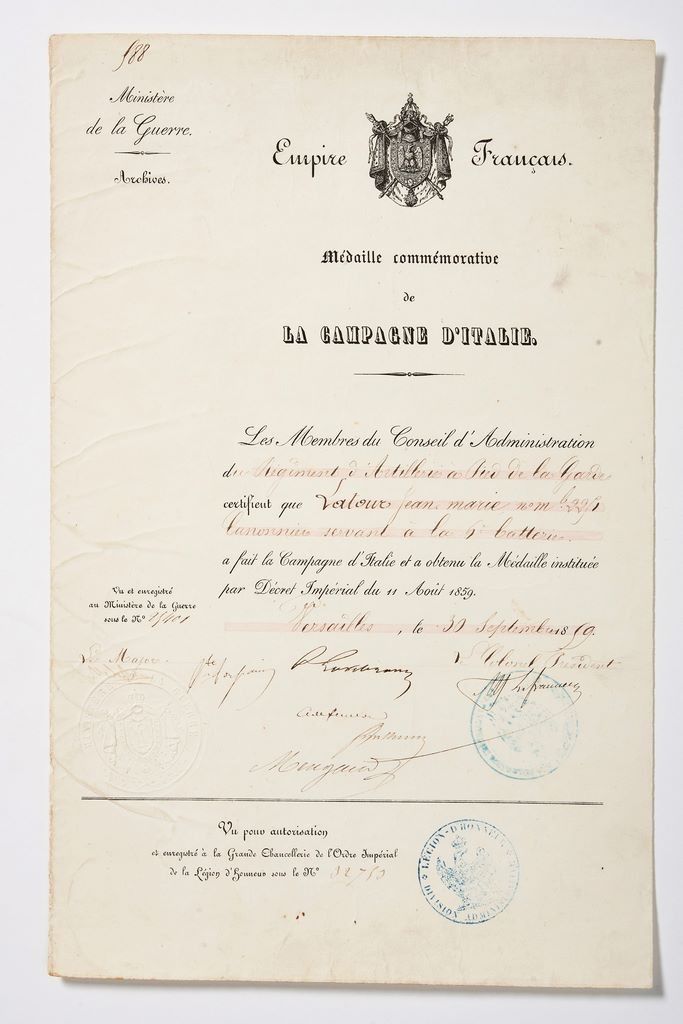 188
Ministère
de la Guerre.
Archives.
Empire Français.
Médaille commémorative
de
LA CAMPAGNE D'ITALIE.
Les Membres du Conseil d'Administration
du Régiment d'Artillerie à Pied de la Garde
certifient que Latour Jean marie
Canonnier servant à la 6e batterie
a fait la Campagne d'Italie et a obtenu la Médaille instituée
par Décret Impérial du 11 Août 1859.
Vu et enregistré
au Ministère de la Guerre
sous le Nº
Versailles, le 30 Septembre 1859.
Le Major
Le Colonel Président
Mengaud
Vu pour autorisation
et enregistré à la Grande Chancellerie de l'Ordre Impérial
de la Légion d'Honneur sous le Nº
LÉGION D'HONNEUR
DIVISION ADMINIS